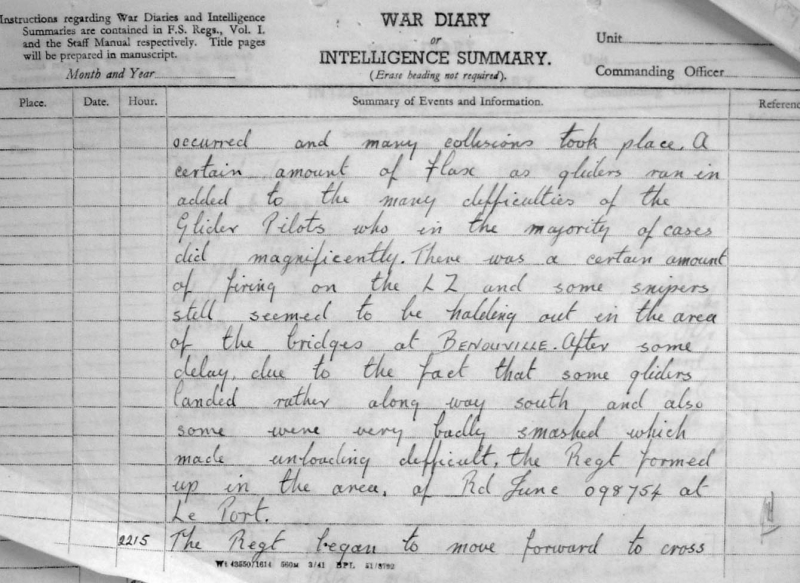 Instructions regarding War Diaries and Intelligence
Summaries are contained in F.S. Regs., Vol. I.
and the Staff Manual respectively. Title pages
will be prepared in manuscript.
Month and Year
WAR DIARY
or
INTELLIGENCE SUMMARY.
(Erase heading not required).
Unit
Commanding Officer
Place. Date. Hour. Summary of Events and Information. Referenc
occurred and many collisions took place. A
certain amount of flax as gliders ran in
added to the many difficulties of the
Glider Pilots who in the majority of cases
did magnificently. There was a certain amount
of firing on the LZ and some snipers
still seemed to be holding out in the area
of the bridges at BENOUVILLE. After some
delay, due to the fact that some gliders
landed rather along way south and also
some were very badly smashed which
made unloading difficult, the Regt formed
up in the area, of Rd June 098754 at
Le Port.
2215 The Regt began to move forward to cross
Wt 43550/1614 560M 3/41 BPL 51/8792